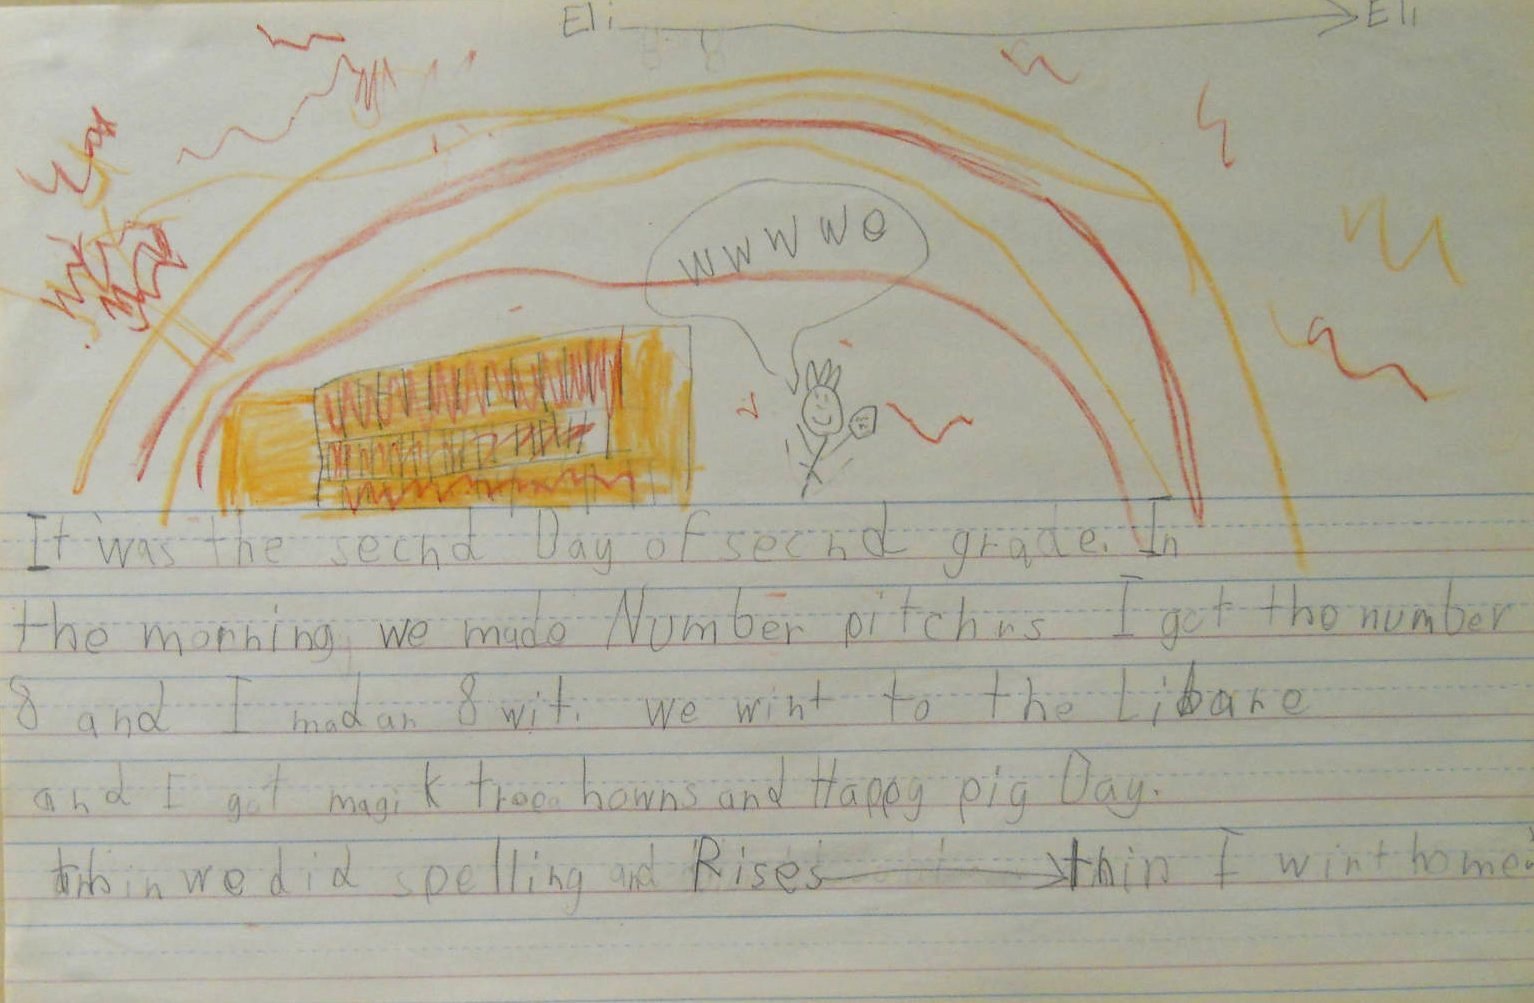 Eli Eli
WWWWe
It was the secnd Day of secnd grade. In
the morning, we made Number pitchrs I got the number
8 and I mad an 8 wit. we wint to the Libare
and I got magik tree howns and Happy pig Day.
thin we did spelling and Rises thin I wint home.